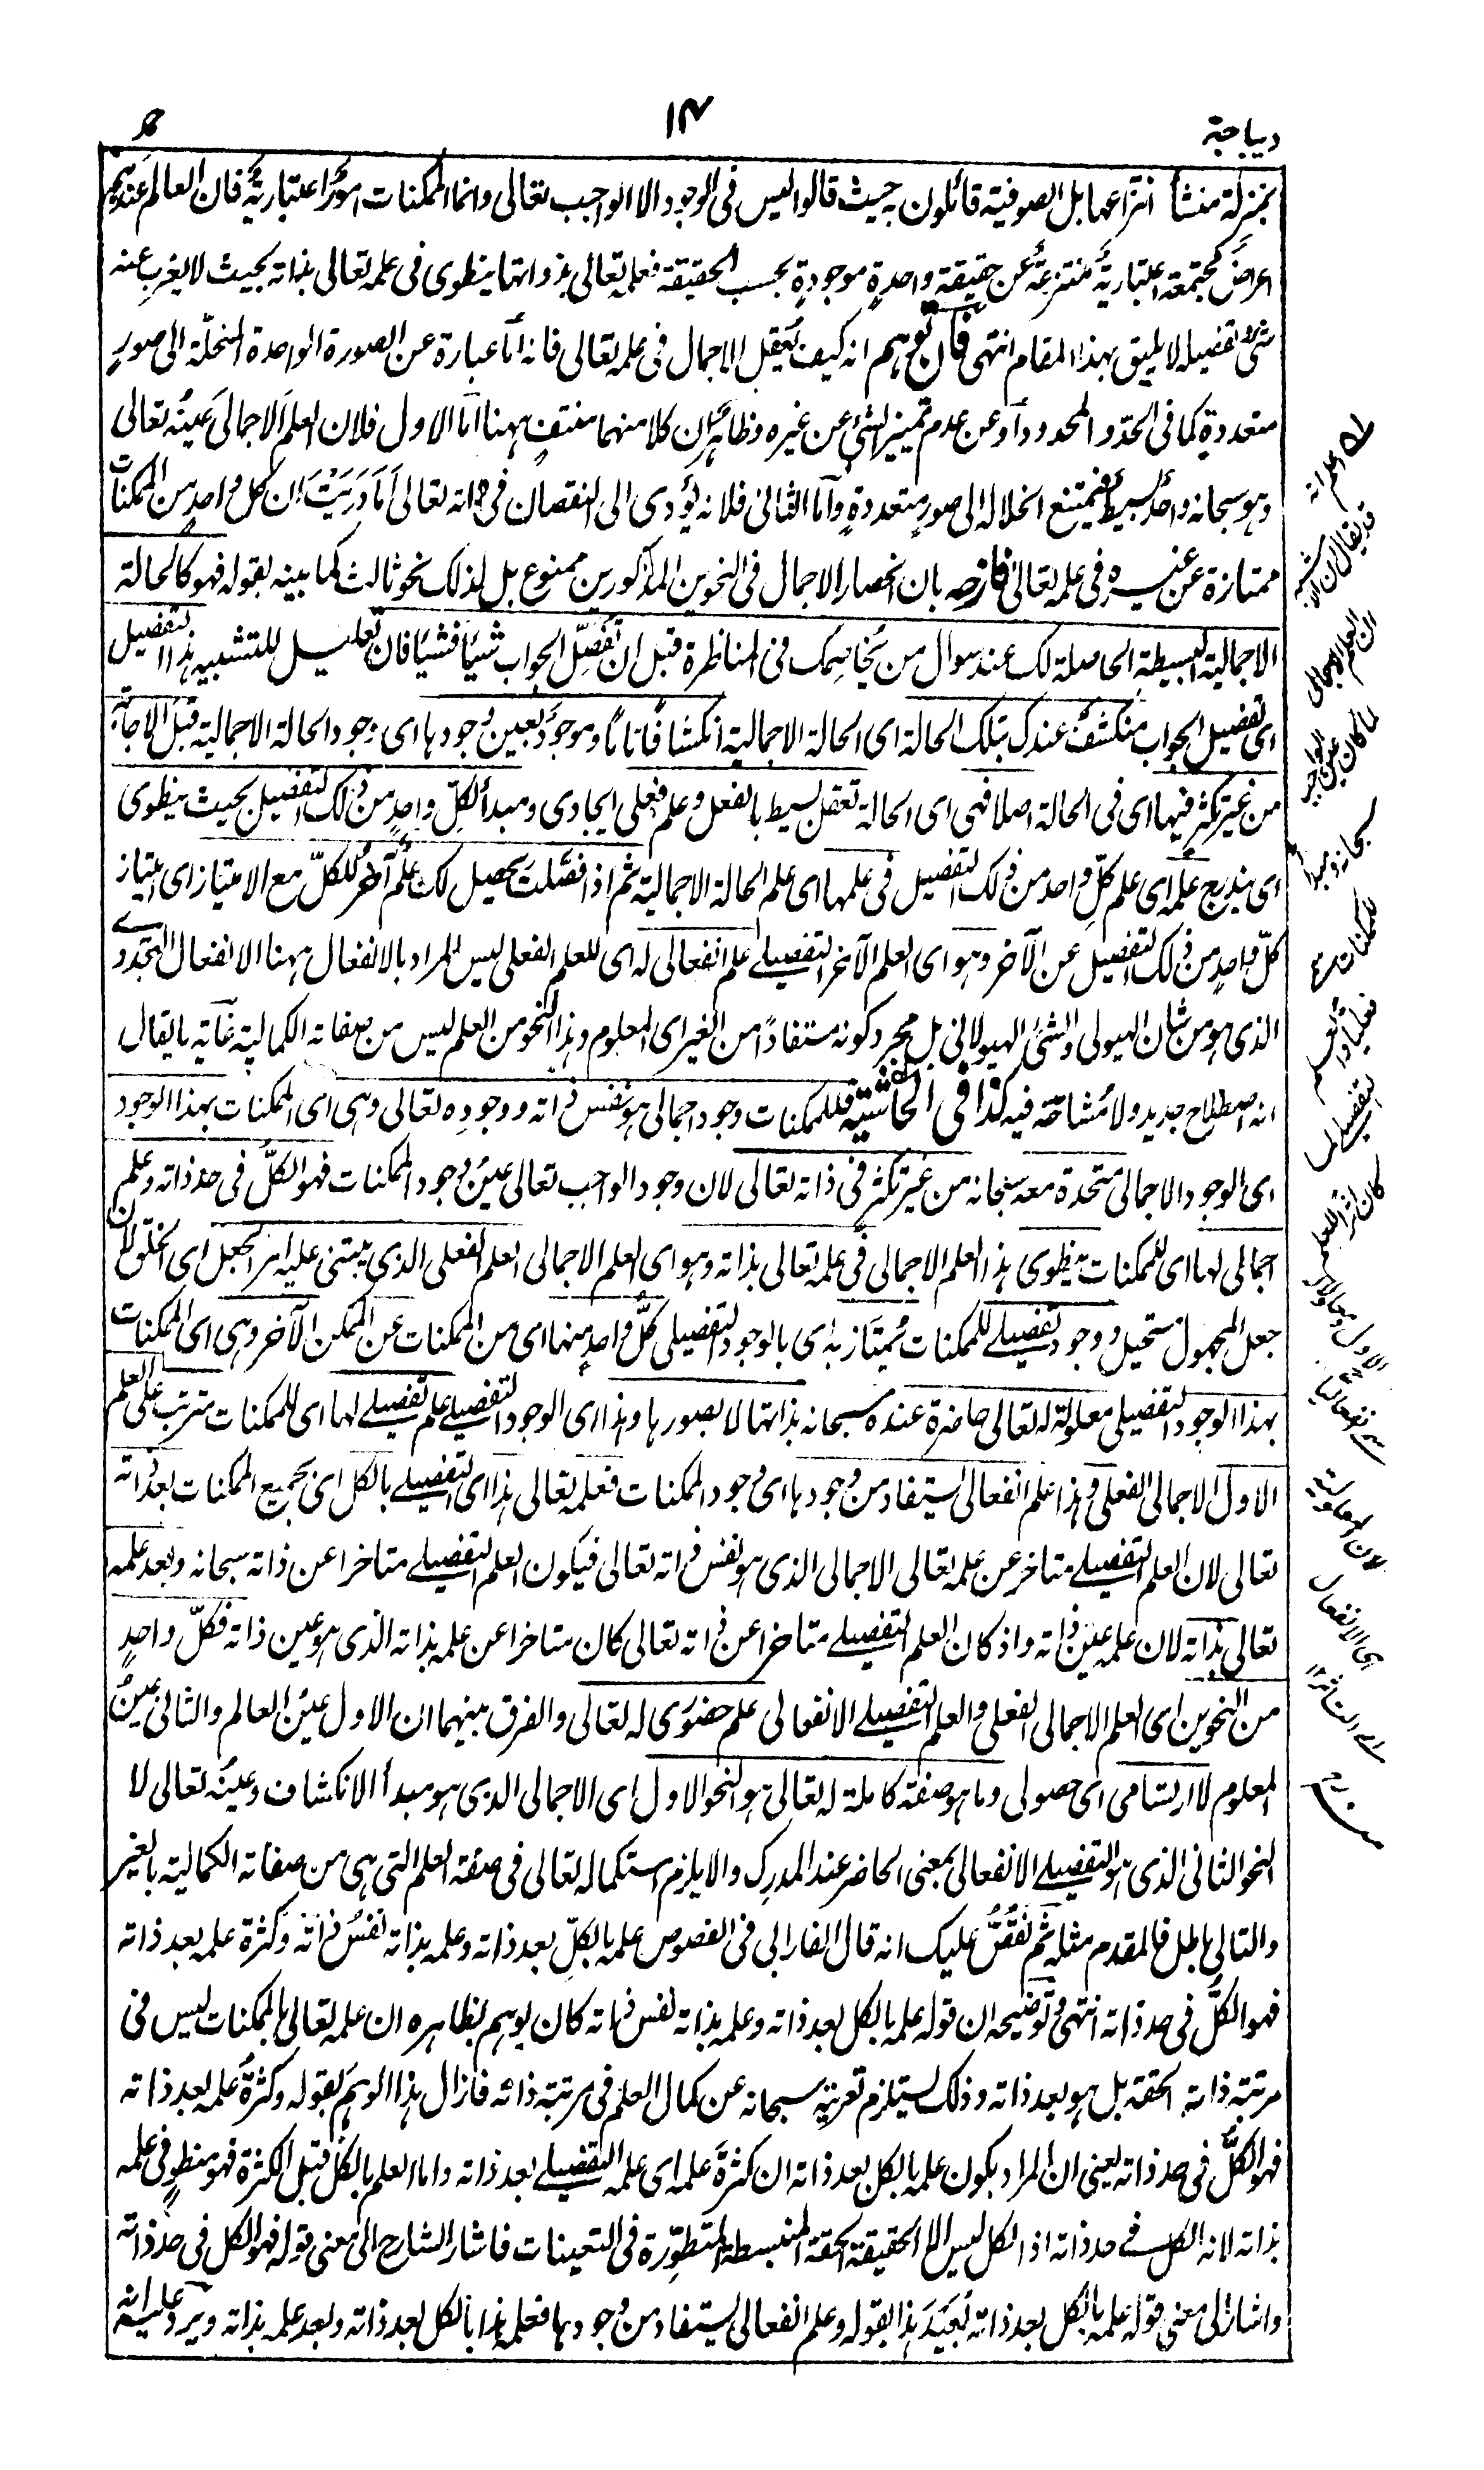 ديباجة
١٤
حمد
بمنزلة منشأ انتزاعها بل الصوفية قائلون به حيث قالوا ليس فى الوجود الا الواجب تعالى وانما الممكنات امورٌ اعتباريةٌ فان العالم عندهم
اعراضٌ مجتمعة اعتباريةٌ منتزعةٌ عن حقيقة واحدةٍ موجودةٍ بحسب الحقيقة فعلمه تعالى بذواتها ينطوى فى علمه تعالى بذاته بحيث لا يغرب عنه
شئٌ تفصيله لا يليق بهذا المقام انتهى انه كيف يُتعقل الاجمال فى علمه تعالى فانه أمّا عبارة عن الصورة الواحدة المنحلّة الى صورٍ
متعددةٍ كما فى الحدّ والمحدود أو عن عدم تميز الشئ عن غيره وظاهرٌ ان كلا منهما منتفٍ ههنا امّا الاول فلان العلمَ الاجمالىَ عينُه تعالى
وهو سبحانه واحدٌ بسيطٌ فيمتنع انحلاله الى صورٍ متعددةٍ وأمّا الثانى فلانه يؤدى الى النقصان فى ذاته تعالى أمَا دَرَيْتَ ان كل واحدٍ من الممكنات
ممتازة عن غيره فى علمه تعالى فازحه بان انحصار الاجمال فى النحوين المذكورين ممنوع بل لذلك نحو ثالث كما بينه بقوله فهو كالحالة
الاجمالية البسيطة الحاصلة لك عند سوال من يُخاصمك فى المناظرة قبل ان تُفصّل الجواب شيئا فشيئا فان تعليل للتشبيه هذا التفصيل
اى تفصيل الجواب منكشفٌ عندك بتلك الحالة اى الحالة الاجمالية انكشافًا تامًا وموجودٌ بعين وجودها اى وجود الحالة الاجمالية قبل الاجابة
من غير تكثر فيها اى فى الحالة اصلا فهى اى الحالة تعقل بسيط بالفعل وعلم فعلى ايجادى ومبدأ لكلِّ واحدٍ من ذلك التفصيل بحيث ينطوى
اى يندرج علمه اى علم كلّ واحد من ذلك التفصيل فى علمها اى علم الحالة الاجمالية ثم اذا فصّلتَ يحصيل لك علمٌ آخرُ للكلّ مع الامتياز اى امتياز
كلّ واحدٍ من ذلك التفصيل عن الآخر وهو اى العلم الآخر التفصيلى علم انفعالى له اى للعلم الفعلى ليس المراد بالانفعال ههنا الانفعال التجددى
الذى هو من شان الهيولى والشئ الهيولانى بل مجرد كونه مستفادًا من الغير اى المعلوم وهذا النحو من العلم ليس من صفاته الكمالية غاية ما يقال
انه اصطلاح جديد ولا مُشاحّة فيه كذا فى الحاشية فللممكنات وجود اجمالى هو نفس ذاته ووجودِه تعالى وهى اى الممكنات بهذا الوجود
اى الوجود الاجمالى متحدة معه سبحانه من غير تكثر فى ذاته تعالى لان وجود الواجب تعالى عينُ وجود الممكنات فهو الكلُّ فى حد ذاته وعلم
اجمالى لها اى للممكنات ينطوى هذا العلم الاجمالى فى علمه تعالى بذاته وهو اى العلم الاجمالى العلم الفعلى الذى يبتنى عليه امر الجعل اى الخلق لان
جعل المجهول مستحيل ووجود تفصيلى للممكنات يُمتاز به اى بالوجود التفصيلى كلّ واحدٍ منها اى من الممكنات عن الممكن الآخر وهى اى الممكنات
بهذا الوجود التفصيلى معلولة له تعالى حاضرة عنده سبحانه بذاتها لا بصورها وهذا اى الوجود التفصيلى علم تفصيلى لها اى للممكنات مترتب على العلم
الاول الاجمالى الفعلى وهذا علم انفعالى يستفاد من وجودها اى وجود الممكنات فعلمه تعالى هذا اى التفصيلى بالكل اى بجميع الممكنات بعد ذاته
تعالى لان العلم التفصيلى متاخر عن علمه تعالى الاجمالى الذى هو نفس ذاته تعالى فيكون العلم التفصيلى متاخرا عن ذاته سبحانه وبعد علمه
تعالى بذاته لان علمه عين ذاته واذ كان العلم التفصيلى متاخرا عن ذاته تعالى كان متاخرا عن علمه بذاته الذى هو عين ذاته فكلّ واحدٍ
من النحوين اى العلم الاجمالى الفعلى والعلم التفصيلى الانفعالى علم حضورى له تعالى والفرق بينهما ان الاول عينُ العالم والثانى عينُ
المعلوم لا ارتسامى اى حصولى وما هو صفة كاملة له تعالى هو النحو الاول اى الاجمالى الذى هو مبدأ الانكشاف وعينُه تعالى لا
النحو الثانى الذى هو التفصيلى الانفعالى بمعنى الحاضر عند المدرك والا يلزم استكماله تعالى فى صفة العلم التى هى من صفاته الكمالية بالغير
والتالى باطل فالمقدم مثله ثم نَقُصُّ عليك انه قال الفارابى فى الفصوص علمه بالكلِّ بعد ذاته وعلمه بذاته نفسُ ذاته وكثرة علمه بعد ذاته
فهو الكلُّ فى حد ذاته انتهى وتوضيحه ان قوله علمه بالكل بعد ذاته وعلمه بذاته نفس ذاته كان يوهم بظاهره ان علمه تعالى بالممكنات ليس فى
مرتبة ذاته الحقة بل هو بعد ذاته وذلك يستلزم تعريته سبحانه عن كمال العلم فى مرتبة ذاته فازال هذا الوهمَ بقوله وكثرةُ علمه بعد ذاته
فهو الكلُّ فى حد ذاته يعنى ان المراد بكون علمه بالكل بعد ذاته ان كثرةَ علمه اى علمه التفصيلى بعد ذاته واما العلم بالكل قبل الكثرة فهو منطوٍ فى علمه
بذاته لانه الكل فى حد ذاته اذ الكل ليس الا الحقيقة الحقة المنبسطة المتطوّرة فى التعينات فاشار الشارح الى معنى قوله فهو الكل فى حد ذاته
واشار الى معنى قوله علمه بالكل بعد ذاته بُعَيْدَ هذا بقوله وعلم انفعالى يستفاد من وجودها فعلمه هذا بالكل بعد ذاته وبعد علمه بذاته ويرد عليه انه
ان العلم الاجمالى
لما كان عين الواجب
سبحانه ومبدأ
للممكنات سمى
فعليا والعلم
التفصيلى لما
كان اثرا للعلم
الاول ومعلولا له
سمى انفعاليا
اى الانفعال